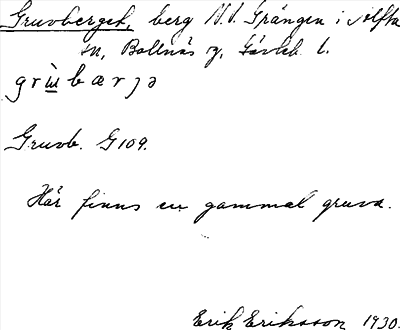 Gruvberget, berg N.V. Grängen i Alfta
sn, Bollnäs g, Gävleb. l.
grùbærjə
Gruvb. G109.
Här finns en gammal gruva.
Erik Eriksson 1930.